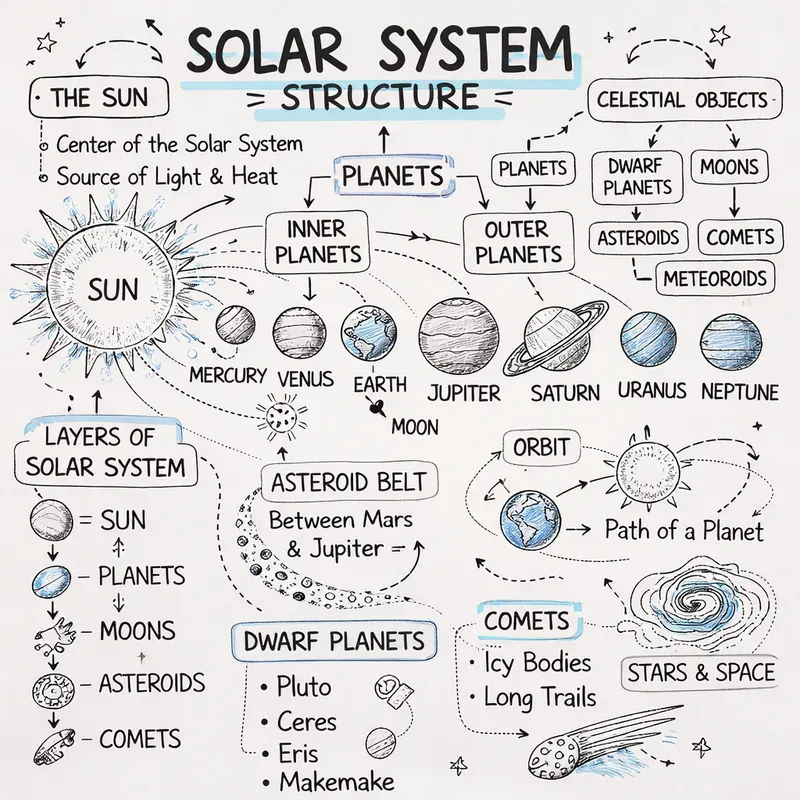 SOLAR SYSTEM
= STRUCTURE =
THE SUN
Center of the Solar System
Source of Light & Heat
PLANETS
INNER
PLANETS
OUTER
PLANETS
CELESTIAL OBJECTS
PLANETS
DWARF
PLANETS
MOONS
ASTEROIDS
COMETS
METEOROIDS
SUN
MERCURY
VENUS
EARTH
MOON
JUPITER
SATURN
URANUS
NEPTUNE
LAYERS OF
SOLAR SYSTEM
= SUN
– PLANETS
– MOONS
– ASTEROIDS
– COMETS
ASTEROID BELT
Between Mars
& Jupiter =
ORBIT
Path of a Planet
DWARF PLANETS
• Pluto
• Ceres
• Eris
• Makemake
COMETS
• Icy Bodies
• Long Trails
STARS & SPACE